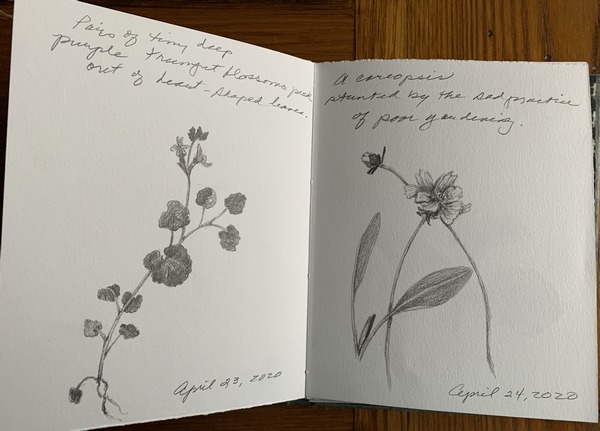 Pairs of tiny deep
purple trumpet blossoms peek
out of heart-shaped leaves.
April 23, 2020
A coreopsis
stunted by the sad practice
of poor gardening.
April 24, 2020